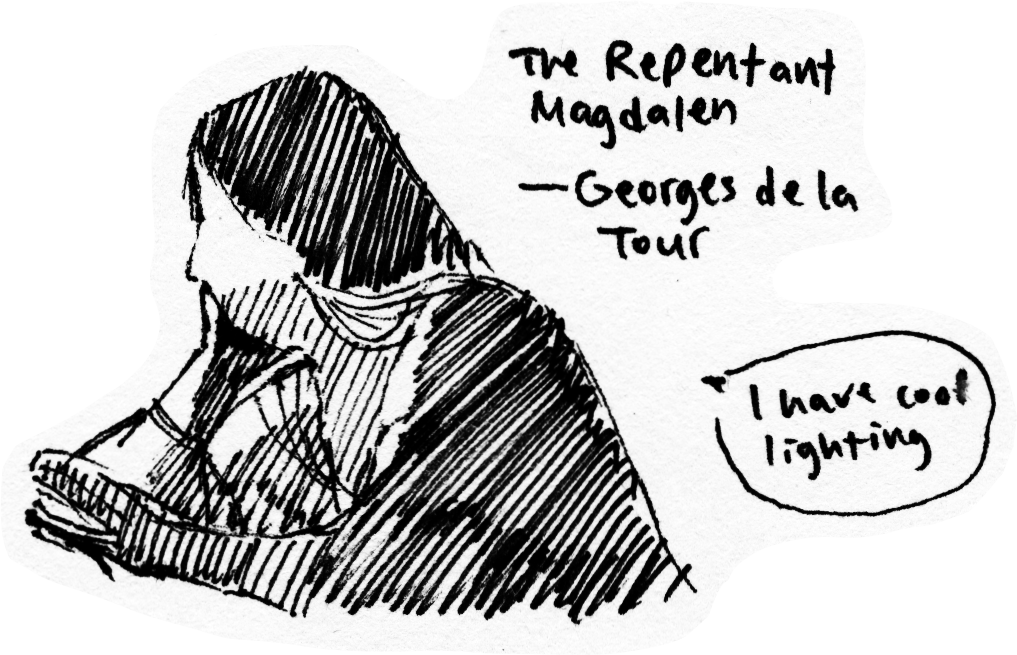 The Repentant
Magdalen
—Georges de la
Tour
I have cool
lighting